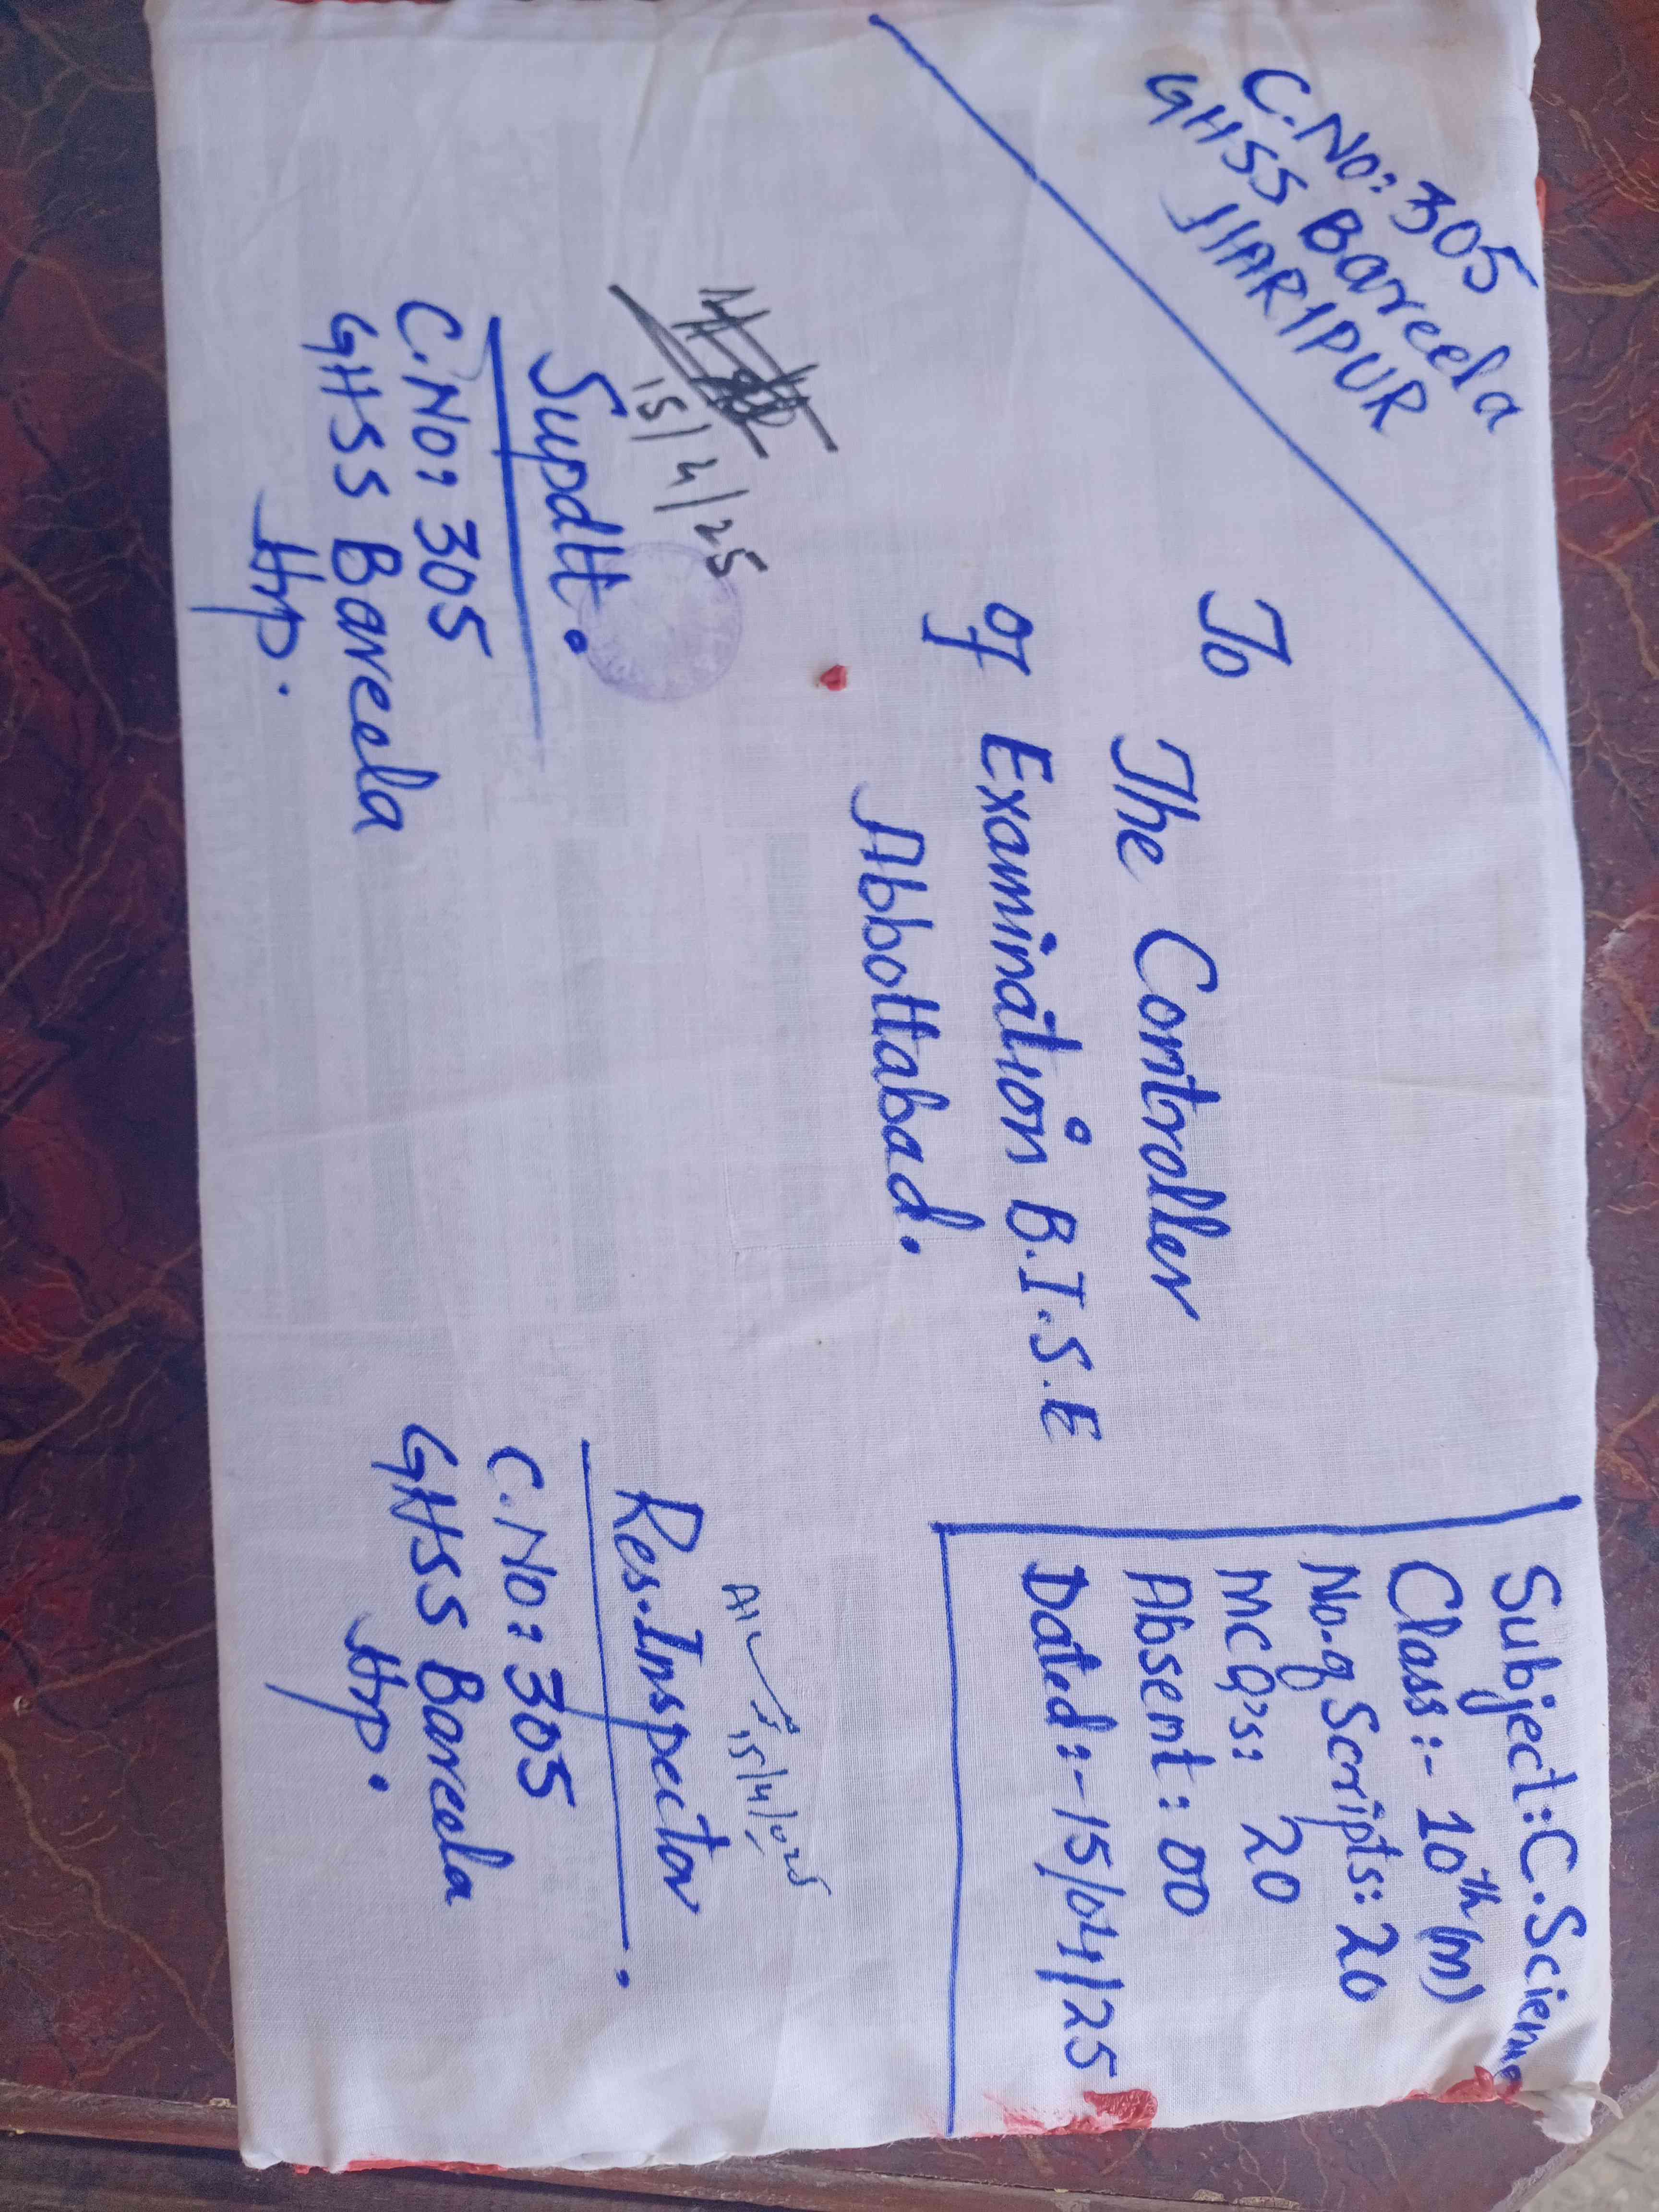 C.No: 305
GHSS Bareela
HARIPUR
Subject: C.Science
Class:- 10th (m)
No. of Scripts: 20
MCQ's: 20
Absent: 00
Dated:- 15/04/25
To
The Controller
of Examination B.I.S.E
Abbottabad.
15/4/25
Supdtt.
C.No: 305
GHSS Bareela
Hrp.
15/4/025
Res.Inspector
C.No: 305
GHSS Bareela
Hrp.